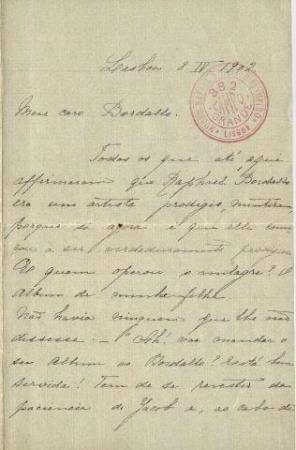 Lisboa 8 IV 1902
Meu caro Bordallo.
Todos os que até aqui
affirmaram que Raphael Bordallo
era um artista prodigio, mentiram,
porque só agora é que elle come
çou a ser verdadeiramente prodigio
E quem operou o milagre? O
album de minha filha.
Não havia ninguem que lhe não
dissesse: — "Ah! vae mandar o
seu Album ao Bordallo? Está bem
servida! Tem de se revestir da
paciencia de Jacob e, ao cabo de
CAMPO GRANDE
382
LISBOA